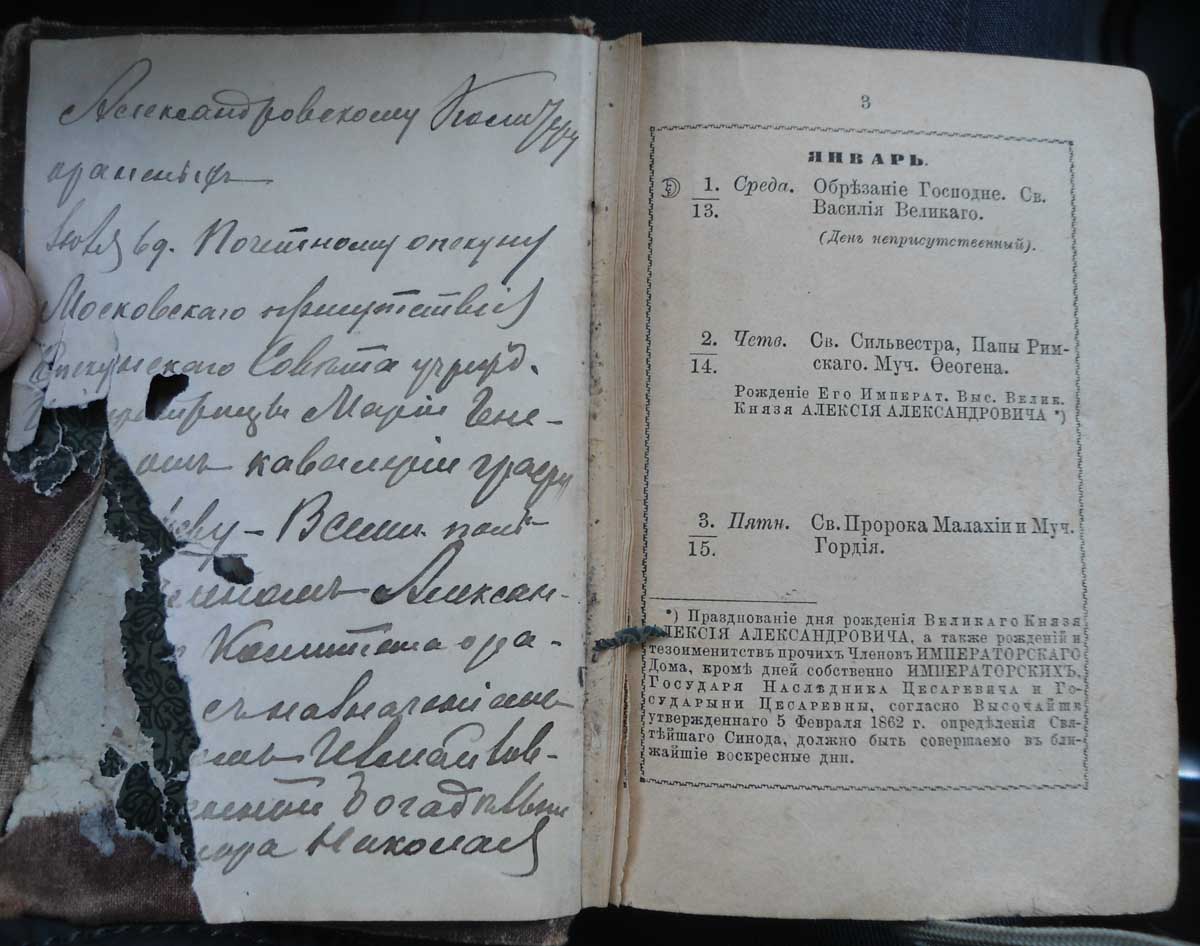 Александровскому Комитету
о раненыхъ
Почетному опекуну
Московскаго присутствія
Опекунскаго Совѣта учрежд.
Маріи Гене-
кавалеріи графу
Всеми. пол-
Алексан-
Комитета о ра-
съ назначеніемъ
Измайлов-
Богадѣльни
Николая
3
ЯНВАРЬ.
1. Среда. Обрѣзаніе Господне. Св.
13. Василія Великаго.
(День неприсутственный).
2. Четв. Св. Сильвестра, Папы Рим-
14. скаго. Муч. Ѳеогена.
Рожденіе Его Императ. Выс. Велик.
Князя АЛЕКСІЯ АЛЕКСАНДРОВИЧА *)
3. Пятн. Св. Пророка Малахіи и Муч.
15. Гордія.
*) Празднованіе дня рожденія Великаго Князя
АЛЕКСІЯ АЛЕКСАНДРОВИЧА, а также рожденій и
тезоименитствъ прочихъ Членовъ ИМПЕРАТОРСКАГО
Дома, кромѣ дней собственно ИМПЕРАТОРСКИХЪ,
Государя Наслѣдника Цесаревича и Го-
сударыни Цесаревны, согласно Высочайше
утвержденнаго 5 Февраля 1862 г. опредѣленія Свя-
тѣйшаго Синода, должно быть совершаемо въ бли-
жайшіе воскресные дни.